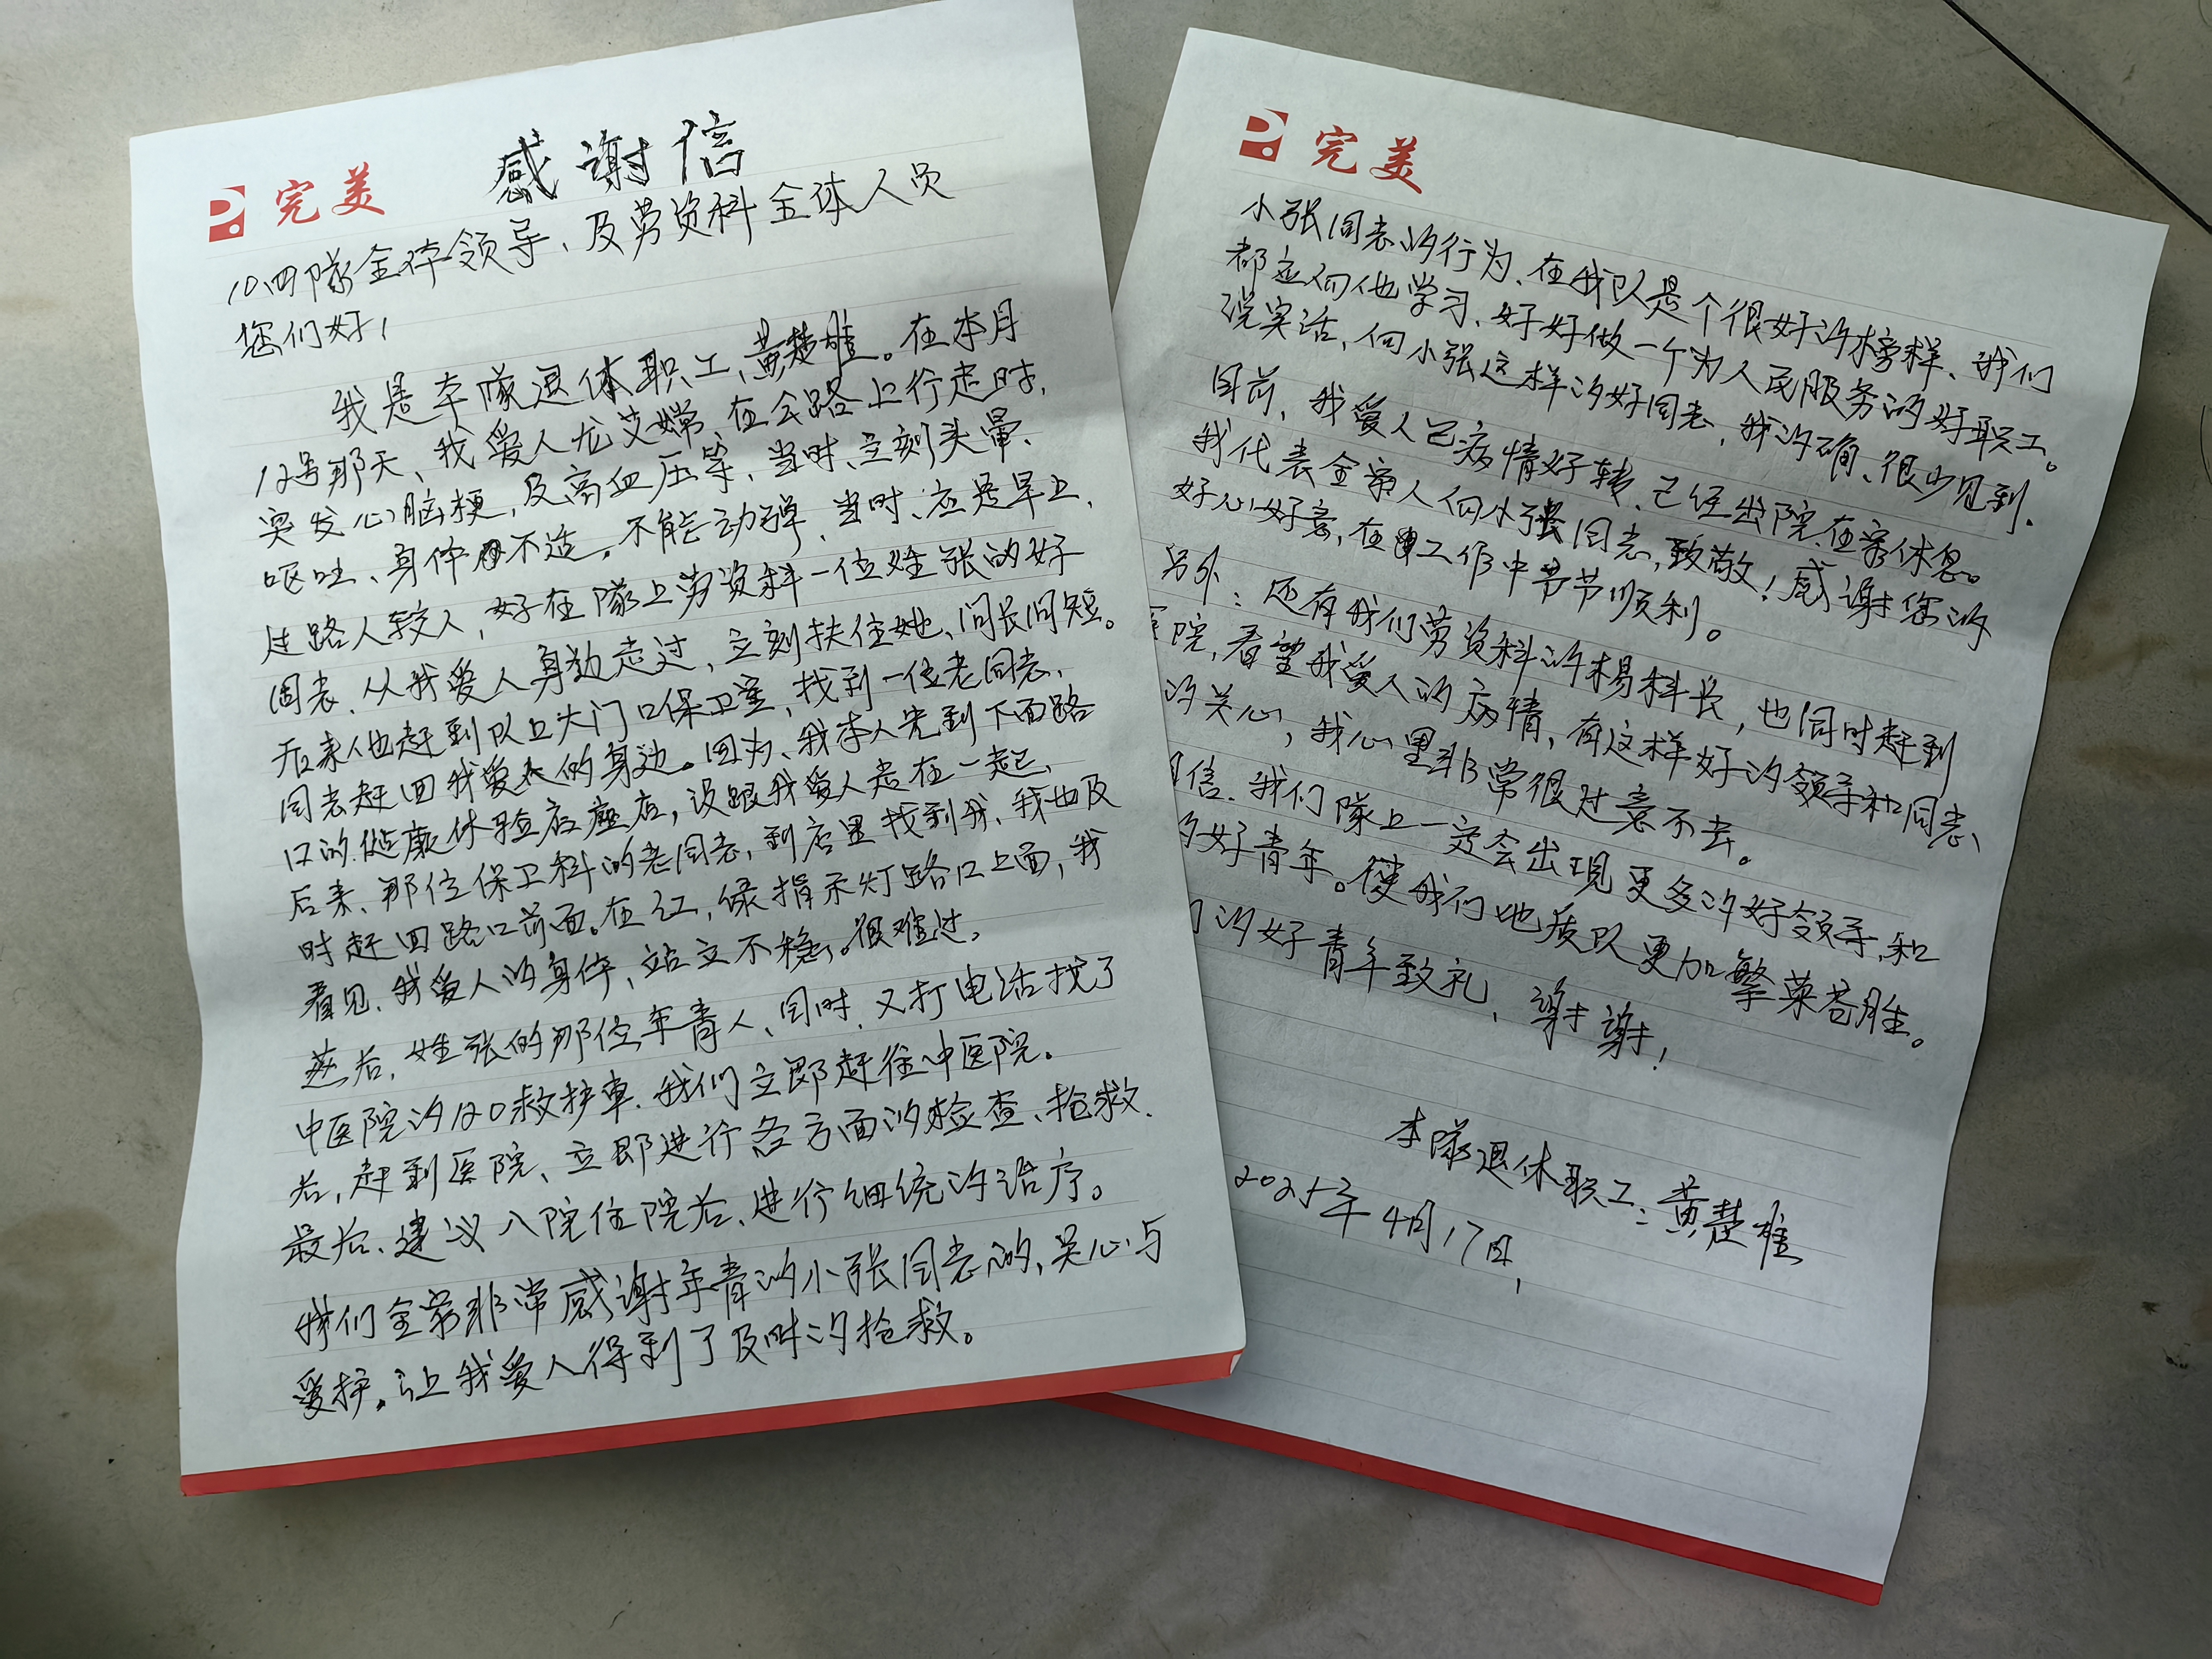 完美
感谢信
10四隊全体领导、及劳资科全体人员
您们好!
我是本隊退休职工、黄楚雄。在本月
12号那天、我爱人龙艾嫦、在公路上行走时、
突发心脑梗,及高血压等、当时、立刻头晕、
呕吐、身体不适。不能动弹、当时、应是早上、
过路人较人,好在隊上劳资科一位姓张的好
同志、从我爱人身边走过,立刻扶住她、问长问短。
后来他赶到队上大门口保卫室,找到一位老同志、
同志赶回我爱人的身边。因为、我本人先到下面路
口的健康体验店座店,没跟我爱人走在一起,
后来、那位保卫科的老同志,到店里找到我、我也及
时赶回路口前面。在红,绿指示灯路口上面,我
看见、我爱人的身体,站立不稳、很难过,
然后,姓张的那位年青人、同时、又打电话找了
中医院的120救护车、我们立即赶往中医院。
后,赶到医院、立即进行各方面的检查、抢救.
最后、建议入院住院后、进行细统的治疗。
我们全家非常感谢年青的小张同志的,关心与
爱护。让我爱人得到了及时的抢救。
完美
小张同志的行为、在我队是个很好的榜样、我们
都应向他学习、好好做一个为人民服务的好职工。
说实话,向小张这样的好同志,我的确、很少见到.
目前,我爱人已病情好转、已经出院、在家休息。
我代表全家人向小张同志,致敬!感谢您的
好心好意,在工作中节节顺利。
另外:还有我们劳资科的杨科长,也同时赶到
院,看望我爱人的病情,有这样好的领导和同志、
的关心,我心里非常很过意不去。
信、我们隊上一定会出现更多的好领导,和
好青年。使我们地质队更加繁荣昌胜。
的好青年致礼,谢谢!
本隊退休职工:黄楚雄
2025年4月17日,